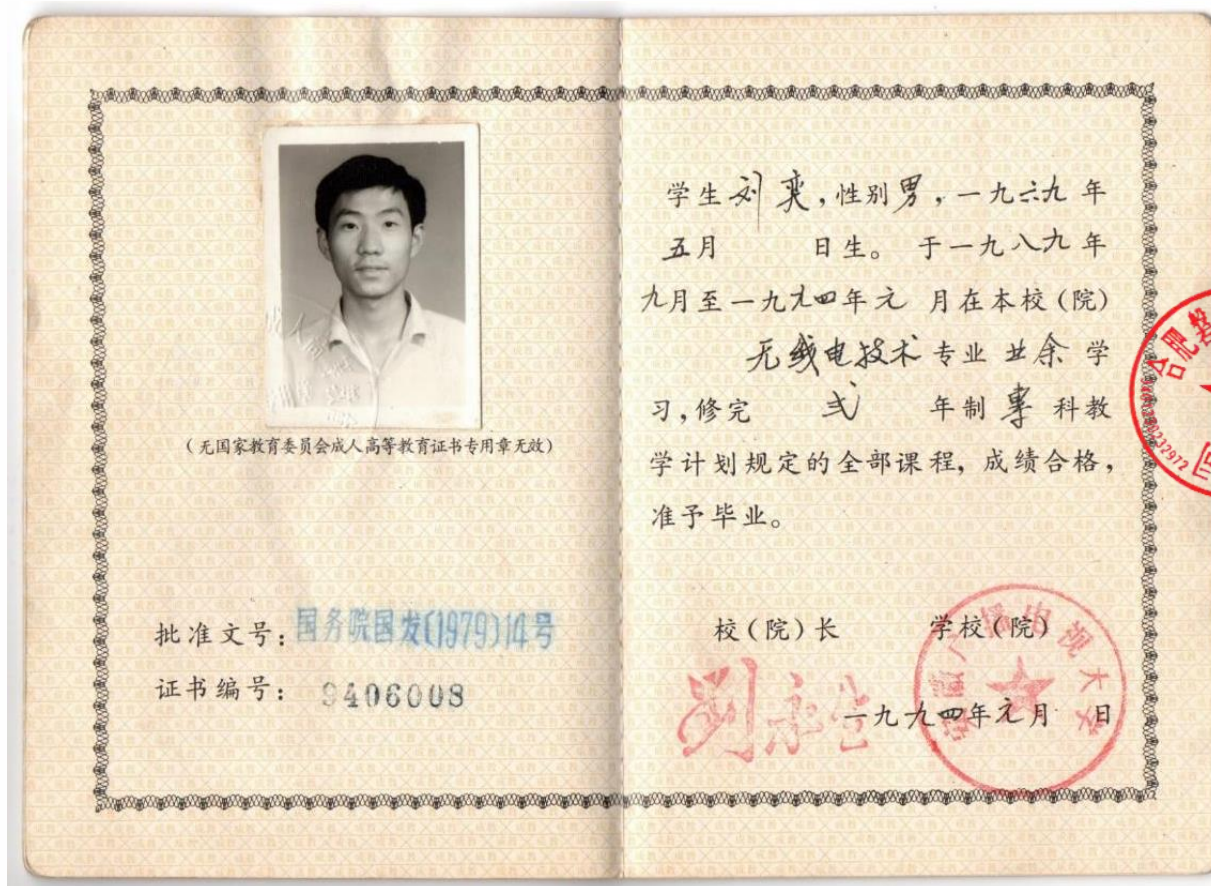 (无国家教育委员会成人高等教育证书专用章无效)
批准文号：国务院国发(1979)14号
证书编号：9406008
学生刘奕，性别男，一九六九年
五月 日生。于一九八九年
九月至一九九四年元 月在本校(院)
无线电技术专业业余学
习，修完 弍 年制 专 科教
学计划规定的全部课程，成绩合格，
准予毕业。
校(院)长 学校(院)
刘永生
一九九四年元月 日
安徽广播电视大学
合肥